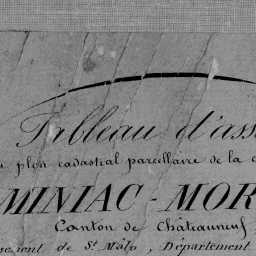 Tableau d'ass
plan cadastral parcellaire de la c
MINIAC-MOR
Canton de Châteauneuf
de St Malo, Département